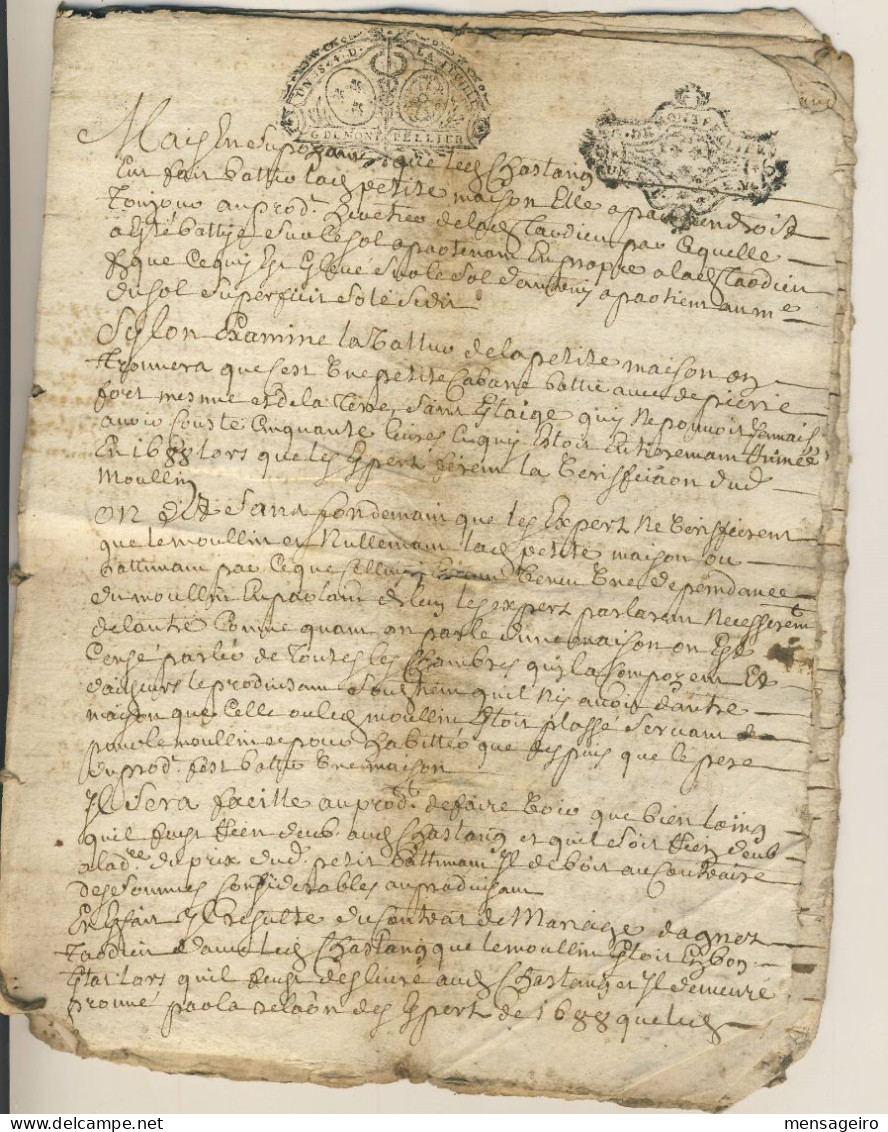 UN S. 4 D. LA FEUILLE
G. DE MONTPELLIER
G. DE MONTPELLIER
Mais En supozant que led Chastang
Eut fait battir lad petite maison Elle apar
Toujour au prod.
a Esté battye sur le sol apartenant En propre a lad
& que Ce quy Est Eslevé sur le sol d'autruy apartient au me
du sol superficit solo sedit
Sy lon Examine la battue de la petite maison on
trouvera que c'est Une petite Cabane battie avec de pierre
fort mesme et de la terre, sans Estaige quy Ne pouvoit Jamais
avoir Couste Cinquante livres Ce quy Estoit Entieremant
En 1688 lors que les Expert firent la Veriffica͠on dud
Moullin
On dit sans fondemant que les Expert Ne Veriffierent
que le moullin et Nullemant lad petite maison ou
battimant par Ce que Celluy Estant Venu Une dependance
du moullin En parlant de luy les expert parlarent Necesserem͠t
de lautre Comme quant on parle d'une maison on Est
Censé parler de toutes les Chambres quy la Compozent Et
dailleurs le produisant soustient quil Ny avoit dautre
maison que Celle ou led moullin Estoit plassé servant
pour le moullin et pour habitter que despuis que le pere
du prod. fest battir Une maison
Il sera facille au prod. de faire Voir que bien loing
quil feust Rien deub aud Chastang et quil soit Rien deub
a lad.re du prix dud. petit battimant Il deboit au Contraire
de sommes Considerables au produisant
En Effait Il Resulte du Contrat de Mariage dagnes
tardieu & dud led Chastang que le moullin Estoit En bon
Estat lors quil feust deslivré aud Chastang et Il demeure
prouvé par la rela͠on des Expert de 1688 que led
mensageiro